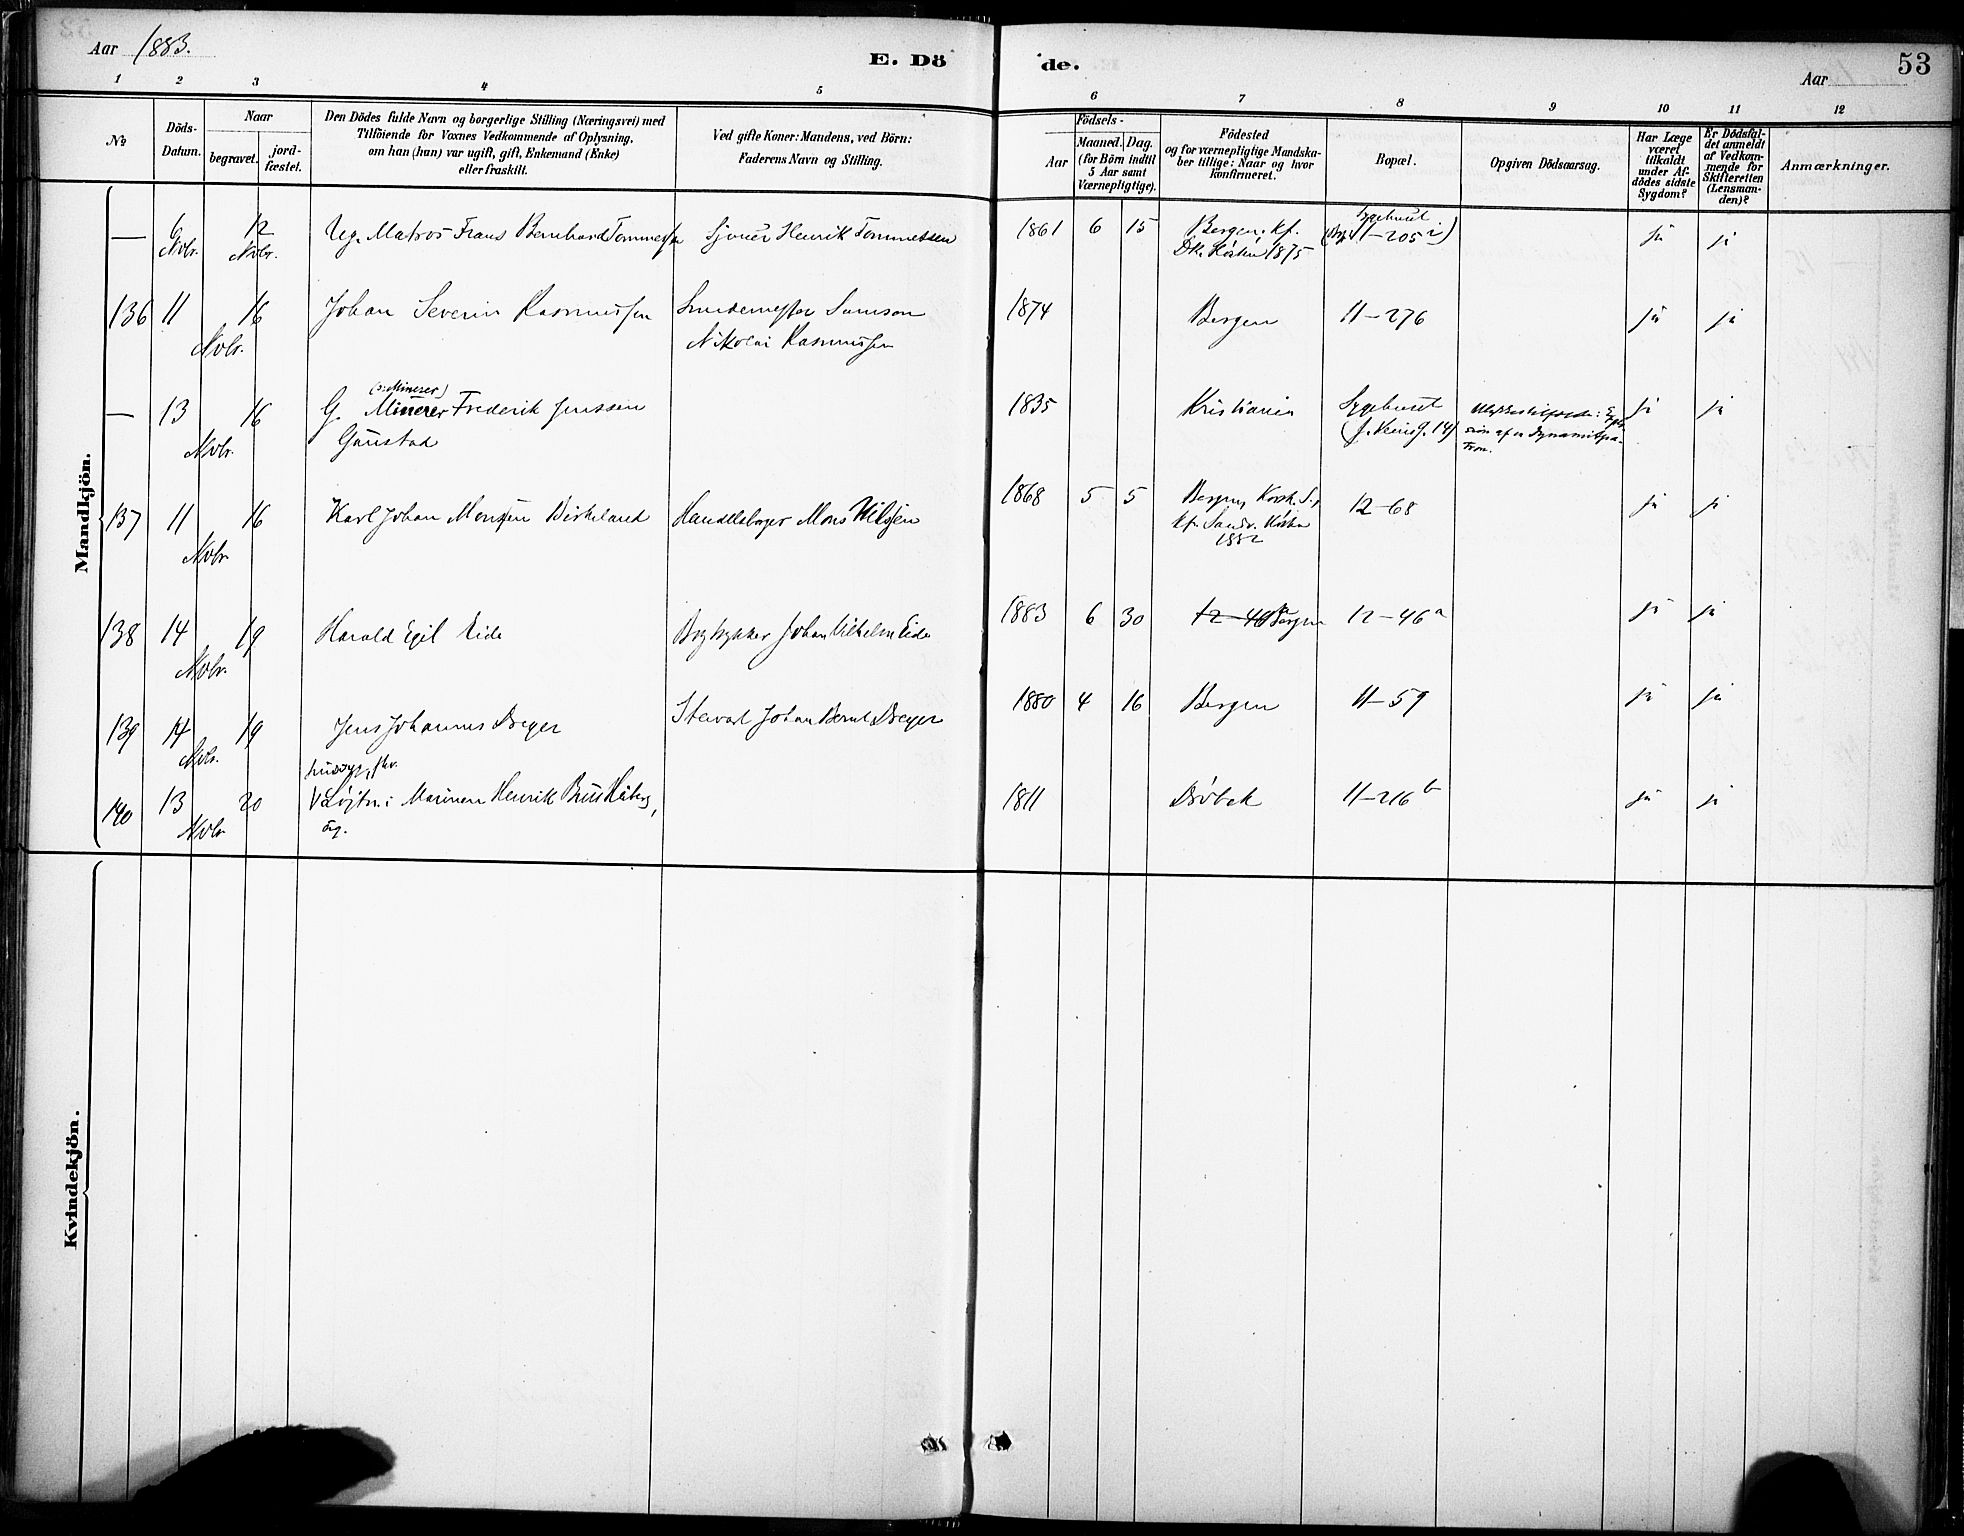 Aar 1883.
E. Dö
de.
Aar
53
1 2 3 4 5
6 7 8 9 10 11 12
No
Döds-
Datum.
Naar
begravet.
jord-
fæstet.
Den Dödes fulde Navn og borgerlige Stilling (Næringsvei) med
Tilföiende for Voxnes Vedkommende af Oplysning,
om han (hun) var ugift, gift, Enkemand (Enke)
eller fraskilt.
Ved gifte Koner: Mandens, ved Börn:
Faderens Navn og Stilling.
Födsels-
Aar
Maaned.
Dag.
(for Börn indtil
5 Aar samt
Værnepligtige).
Födested
og for værnepligtige Mandska-
ber tillige: Naar og hvor
konfirmeret.
Bopæl.
Opgiven Dödsaarsag.
Har Læge
været
tilkaldt
under Af-
dödes sidste
Sygdom?
Er Dödsfal-
det anmeldt
af Vedkom-
mende for
Skifteretten
(Lensman-
den)?
Anmærkninger.
Mandkjön.
— 6 Nvbr. 12 Nvbr. Ug. Matros Frans Bernhard Tommessen Henrik Tommessen 1861 6 15 Bergen. kf. Sygehuset
1875 11-205 ja ja
136 11 16 Johan Severin Rasmussen Smedemester Samson 1874 Bergen 11-276 ja ja
Nvbr. Nikolai Rasmussen
(Minerer)
— 13 16 G. Minerer Frederik Jenssen 1835 Kristiania Sygehuset ja ja
Nvbr. Gunstad af en Dynamitpa-
tron.
137 11 16 Karl Johan Monsen Birkeland Mons Nilsen 1868 5 5 Bergen, Korsk. S., 12-68 ja ja
Nvbr. kf. 1882
138 14 19 Harald Egil Eide Bogtrykker Johan Vilhelm Eide 1883 6 30 12-46a Bergen 12-46a ja ja
Nvbr.
139 14 19 Jens Johannes Dreyer Stevart Johan Bernt Dreyer 1880 4 16 Bergen 11-59 ja ja
Nvbr.
140 13 20 i Marinen Henrik 1811 Drøbak 11-216b ja ja
Nvbr.
Kvindekjön.